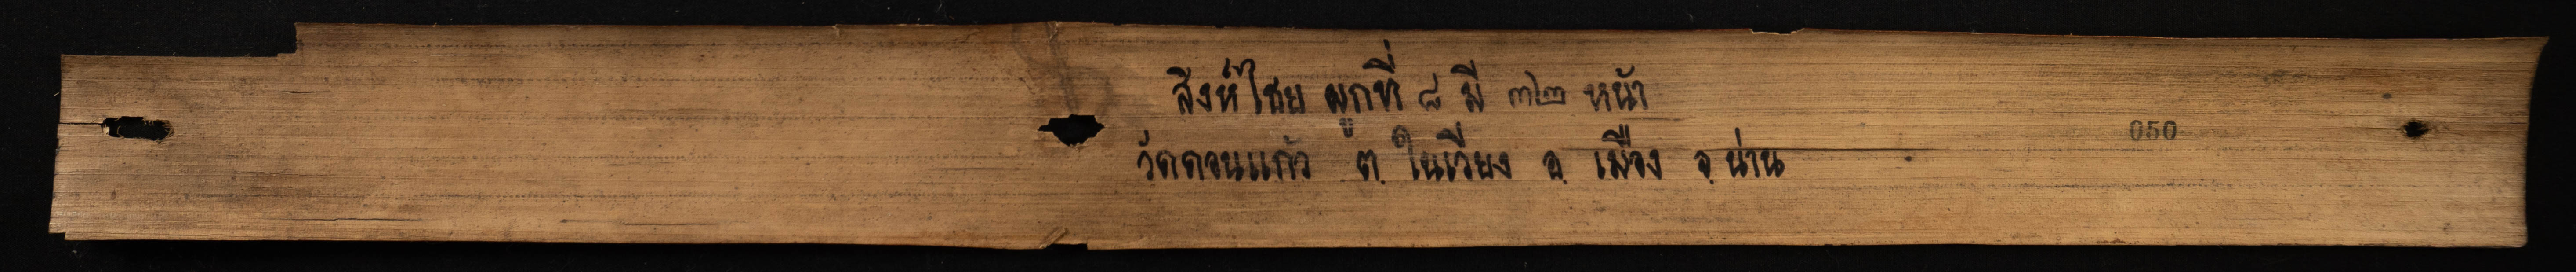 สิงห์ไชย ผูกที่ ๘ มี ๓๒ หน้า
050
วัดดอนแก้ว ต. ในเวียง อ. เมือง จ. น่าน